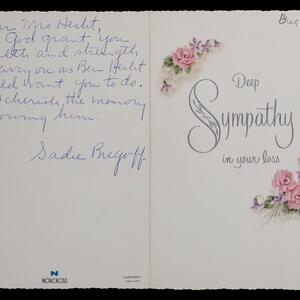 Mrs Hecht,
God grant you
and strength
carry on as Ben Hecht
want you to do.
cherish the memory
him.
Sadie Bregoff
N
NORCROSS
Breg
Deep
Sympathy
in your loss